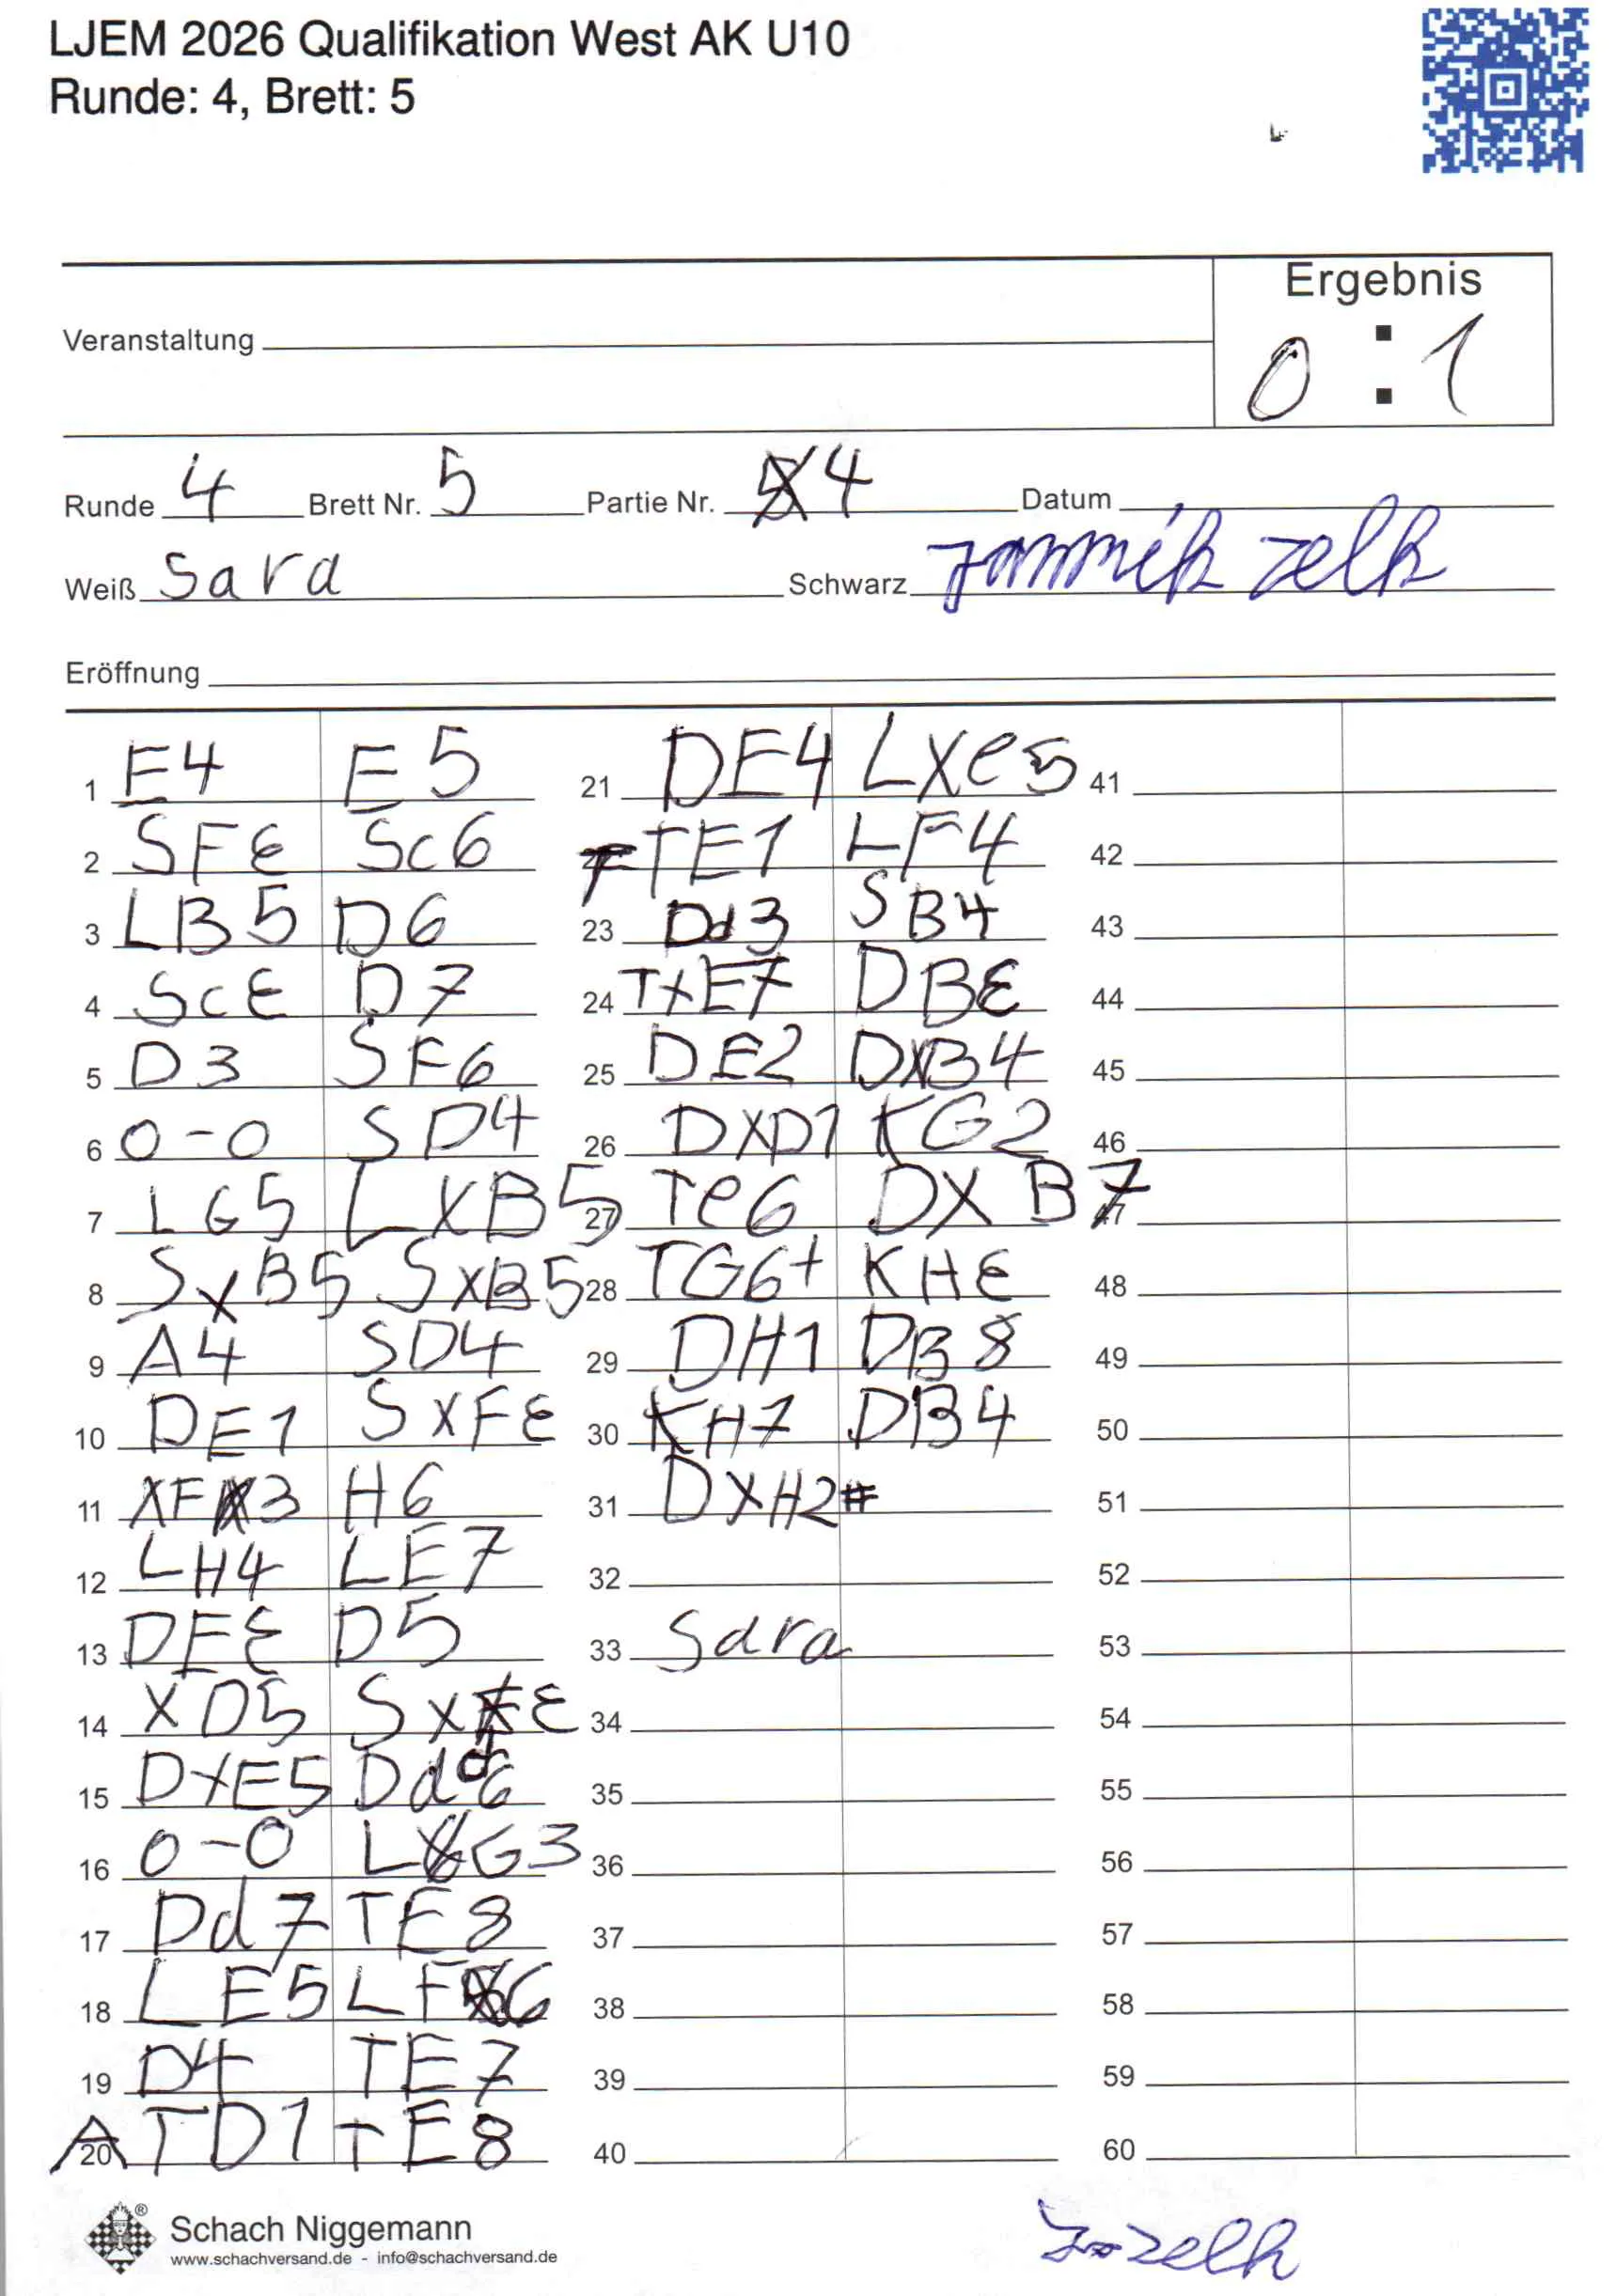 LJEM 2026 Qualifikation West AK U10
Runde: 4, Brett: 5
Ergebnis
Veranstaltung
0 : 1
Runde 4 Brett Nr. 5 Partie Nr. 4 Datum
Weiß Sara Schwarz Jannik Zelk
Eröffnung
1 E4 E5
2 SF3 Sc6
3 LB5 D6
4 Sc3 D7
5 D3 SF6
6 0-0 SD4
7 LG5 LXB5
8 SxB5 SXB5
9 A4 SD4
10 DE1 SXF3
11 XF3 H6
12 LH4 LE7
13 DE3 D5
14 XD5 SxF3
15 DXE5 Dd6
16 0-0 LG3
17 Dd7 TE8
18 LE5 LF6
19 D4 TE7
20 ATD1 TE8
21 DE4 LXe5
FTE1 LF4
23 Dd3 SB4
24 TXE7 DB3
25 DE2 DXB4
26 DXD1 KG2
27 Te6 DXB7
28 TG6+ KH3
29 DH1 DB8
30 KH7 DB4
31 DXH2#
32
33 Sara
34
35
36
37
38
39
40
41
42
43
44
45
46
47
48
49
50
51
52
53
54
55
56
57
58
59
60
Schach Niggemann
www.schachversand.de - info@schachversand.de